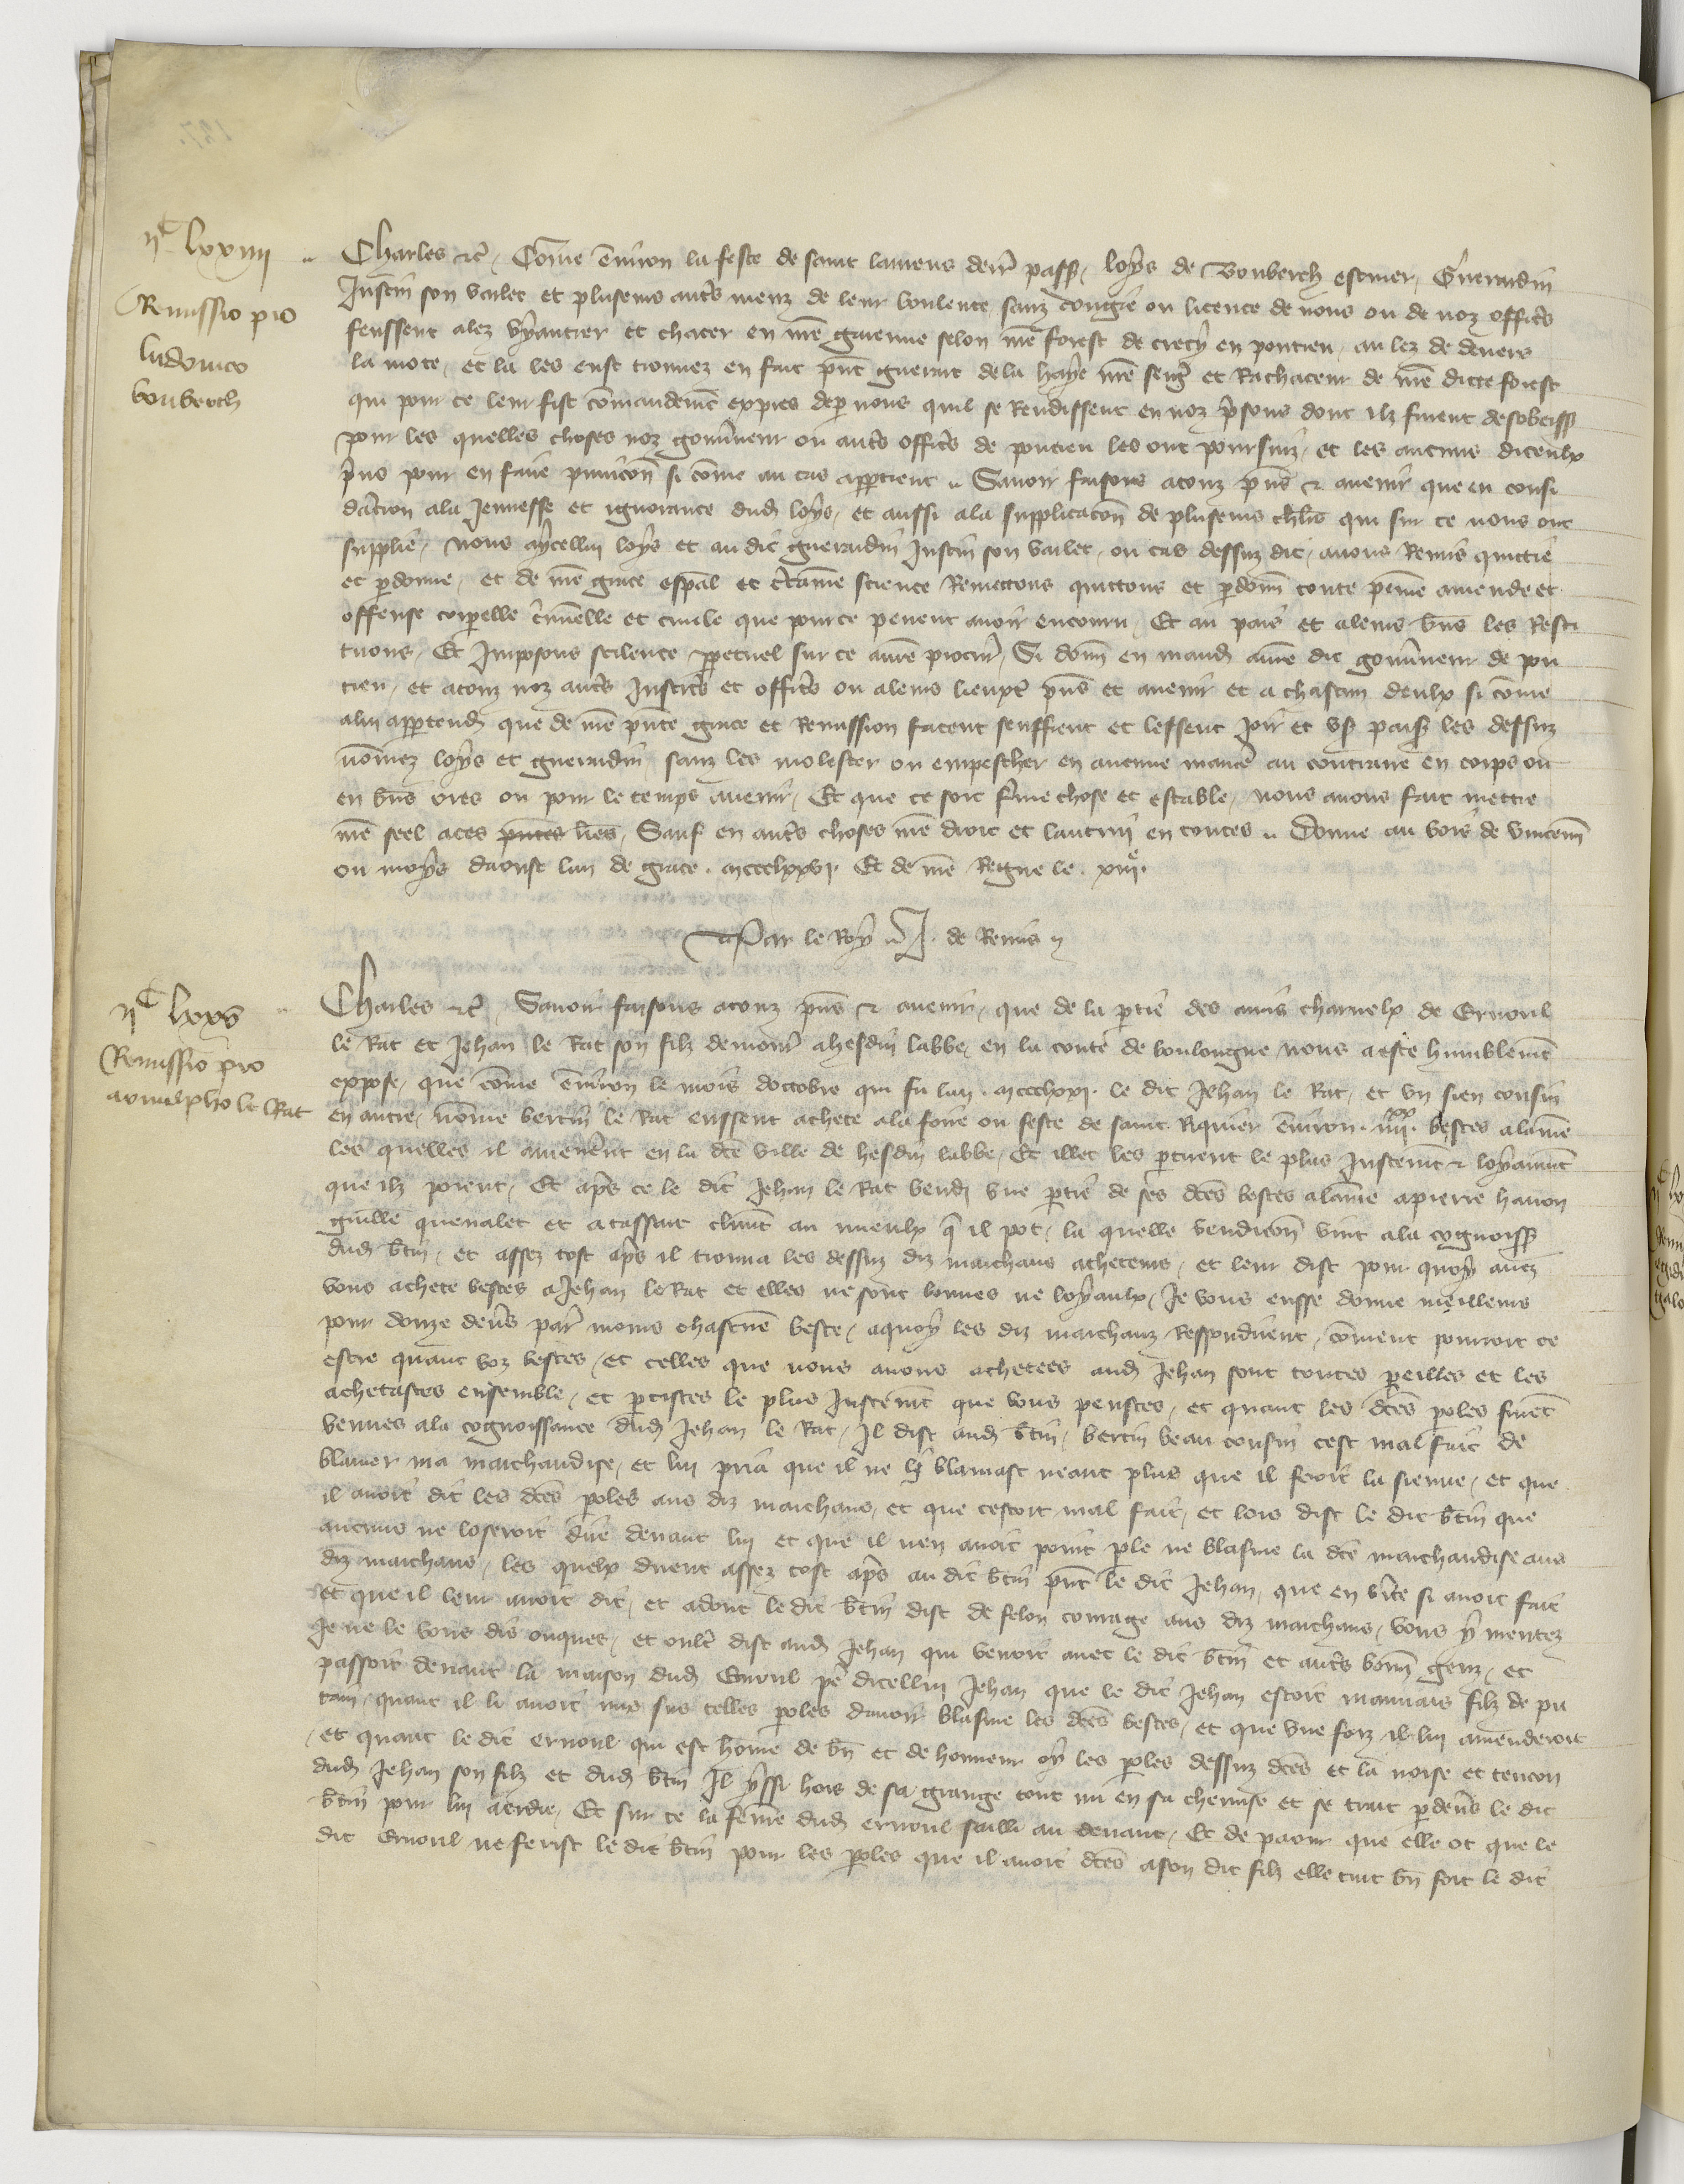 IIC LXXIIII
Remissio pro
Ludovico
Bouberch
Charles etc. Come environ la feste de saint Laurens derr. pass., Loys de Bouberch escuier, Guerardin
Justin son vallet et plusieurs autrs meuz de leur voulente sanz congie ou licence de nous ou de noz offics
feussent alez et chacer en nre garenne selon nre forest de Crecy en Pontieu, au lez de devers
la Mote, et la les eust trouvez en fait pnt Guerart de la Haye nre serg. et Rachaceur de nre dicte forest
qui pour ce leur fist comandemt expres de p nous quil se rendissent en noz prisons dont ilz furent desobeiss.
pour les quelles choses noz gouvneur ou autrs offics de Pontieu les ont poursuiz, et les aucuns diceulx
prins pour en faire punicon si come au cas appartient. Savoir faisons a touz pns et avenir que en consi
dacion a la jeunesse et ignorance dud. Loys, et aussi a la supplicacon de plusieurs chlrs qui sur ce nous ont
supplie, nous a ycellui Loys et au dit Guerardin Justin son vallet, ou cas dessuz dit, avons remis quittie
et pdonne, et de nre grace espal et ctaine science remettons quittons et pdonn. toute peine amende et
offense corpelle cminelle et civile que pour ce pevent avoir encouru, Et au pais et a leurs bns les resti
tuons, Et imposons scilence ppetuel sur ce a nre procur. Si donn. en mand. a nre dit gouvneur de Pon
tieu, et a touz noz autrs justics et offics ou a leurs lieuxt. pns et avenir et a chascun deulx si come
a lui appartendr. que de nre pnte grace et remission facent seuffrent et lessent joir et us. paisib. les dessuz
nomez Loys et Guerardin, sanz les molester ou empescher en aucune manie au contraire en corps ou
en bns ores ou pour le temps avenir, Et que ce soit ferme chose et estable, nous avons fait mettre
nre seel a ces pntes lres, Sauf en autrs choses nre droit et lautrui en toutes. Donne au Bois de Vincenn.
ou moys daoust lan de grace mccclxxvi. Et de nre Regne le xiiie.
Par le Roy. J. de Remis
IIC LXXV
Remissio pro
Arnulpho le Rat
Charles etc. Savoir faisons a touz pns et avenir, que de la ptie des amis charnelx de Ernoul
le Rat et Jehan le Rat son filz demour. a Hesdin Labbe, en la conte de Bouloigne nous a este humblemt
expose, que come environ le mois doctobre qui fu lan mccclxxi. le dit Jehan le Rat, et un sien cousin
en autre, nome Bertin le Rat eussent achete a la foire ou feste de saint Riquier environ IIIIxx bestes a laine
les quelles il amenerent en la dce ville de Hesdin Labbe, Et illec les ptirent le plus justemt et loyaumt
que ilz porent, Et aprs ce le dit Jehan le Rat vend. une ptie de ses dces bestes a laine a Pierre Havon
Guille Quenalet et a Tassart Climt au mieulx q il pot, la quelle vendicon vint a la cognoiss.
dud. Btin, et assez tost aprs il trouva les dessuz diz marchans acheteurs, et leur dist pour quoy avez
vous achete bestes a Jehan le Rat et elles ne sont bonnes ne loyaulx, Je vous eusse donne meilleurs
pour douze dens par. moins chascune beste, a quoy les diz marchanz respondirent, coment pourroit ce
estre quant voz bestes, et celles que nous avons achetees aud. Jehan sont toutes peilles et les
achetastes ensemble, et ptistes le plus justemt que vous peustes, et quant les dces poles furent
venues a la cognoissance dud. Jehan le Rat, Il dist aud. Btin, Bertin beau cousin cest mal fait de
blamer ma marchandise, et lui pria que il ne li blamast neant plus que il feroit la sienne, et que
il avoit dit les dces poles aus diz marchans, et que cestoit mal fait, et lors dist le dit Btin que
aucuns ne loseroit dire devant lui et que il nen avoit point ple ne blasme la dce marchandise aus
diz marchans, les quelx dirent assez tost aprs au dit Btin pnt le dit Jehan, que en vite si avoit fait
et que il leur avoit dit, et adont le dit Btin dist de felon courage aus diz marchans, vous y mentez
je ne le vous dis onques, et oultr dist aud. Jehan qui venoit avec le dit Btin et autrs bonn. genz, et
passoit devant la maison dud. Ernoul pe dicellui Jehan que le dit Jehan estoit mauvais filz de pu
tain, quant il li avoit mis sus telles poles davoir blasme les dces bestes, et que une foiz il lui amenderoit
et quant le dit Ernoul qui est home de bn et de honneur oy les poles dessuz dces et la noise et tencon
dud. Jehan son filz et dud. Btin Il yssi hors de sa grange tout nu en sa chemise et se trait p devs le dit
Btin pour lui aerdre, Et sur ce la feme dud. Ernoul sailli au devant, Et de paour que elle ot que le
dit Ernoul ne ferist le dit Btin pour les poles que il avoit dces a son dit filz elle tint bn fort le dit